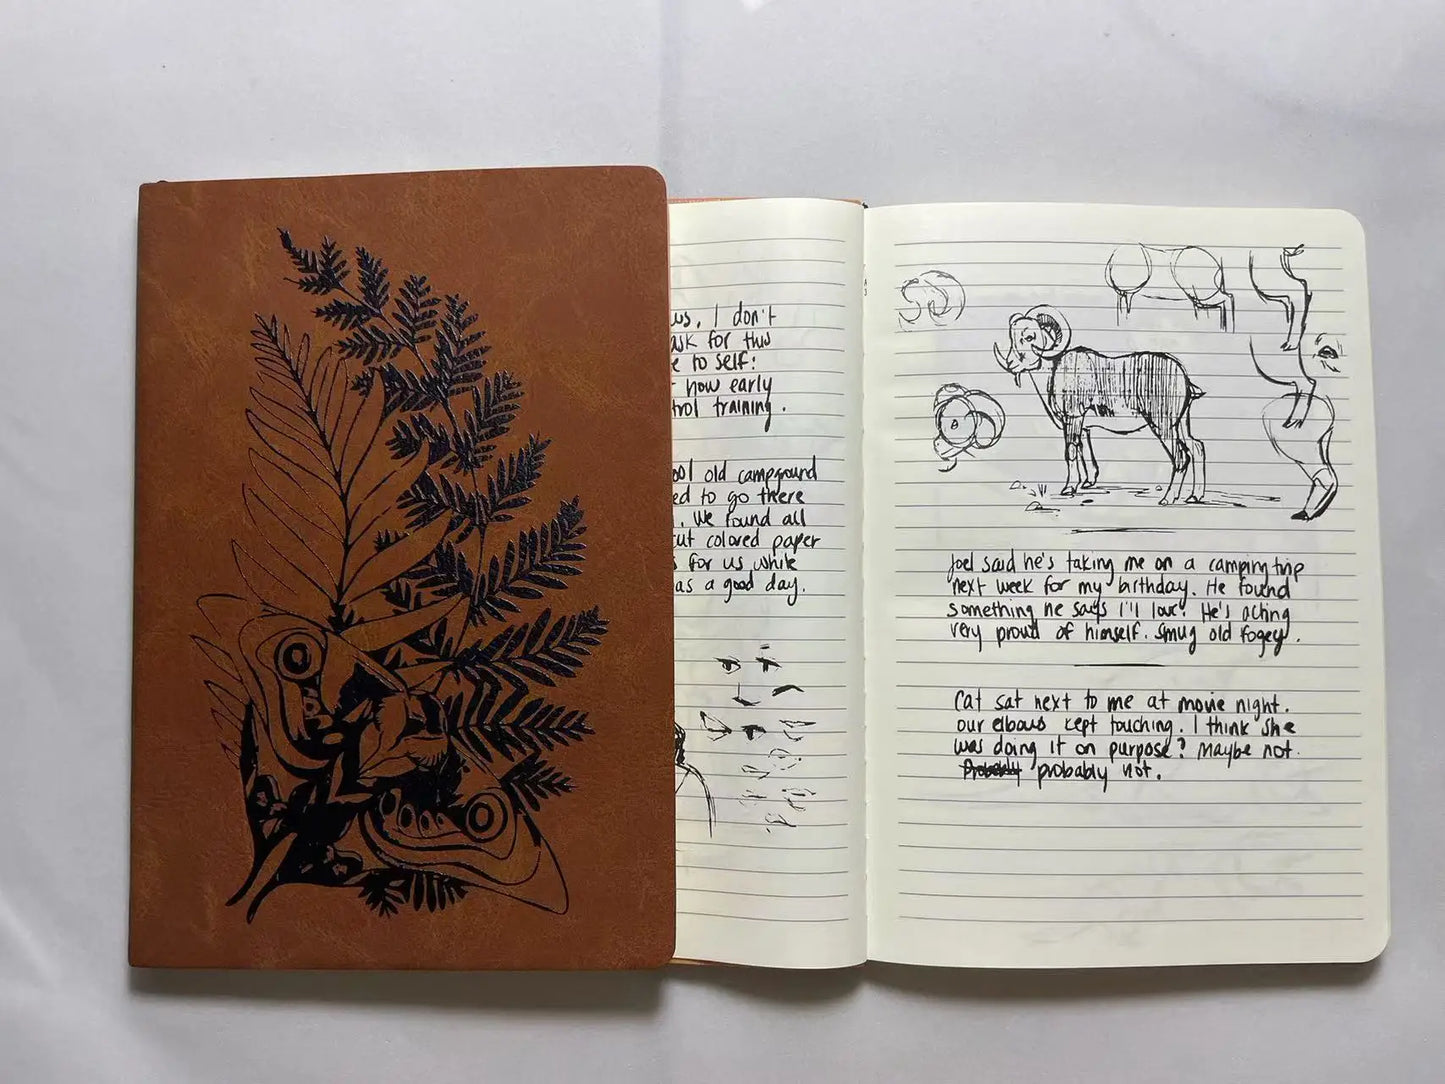 ws, I don't
ask for this
e to self:
how early
trol training.
ool old campground
ed to go there
. We found all
cut colored paper
s for us while
as a good day.
Joel said he's taking me on a camping trip
next week for my birthday. He found
something he says I'll love. He's acting
very proud of himself. Smug old fogey.
Cat sat next to me at movie night.
Our elbows kept touching. I think she
was doing it on purpose? Maybe not.
Probably probably not.